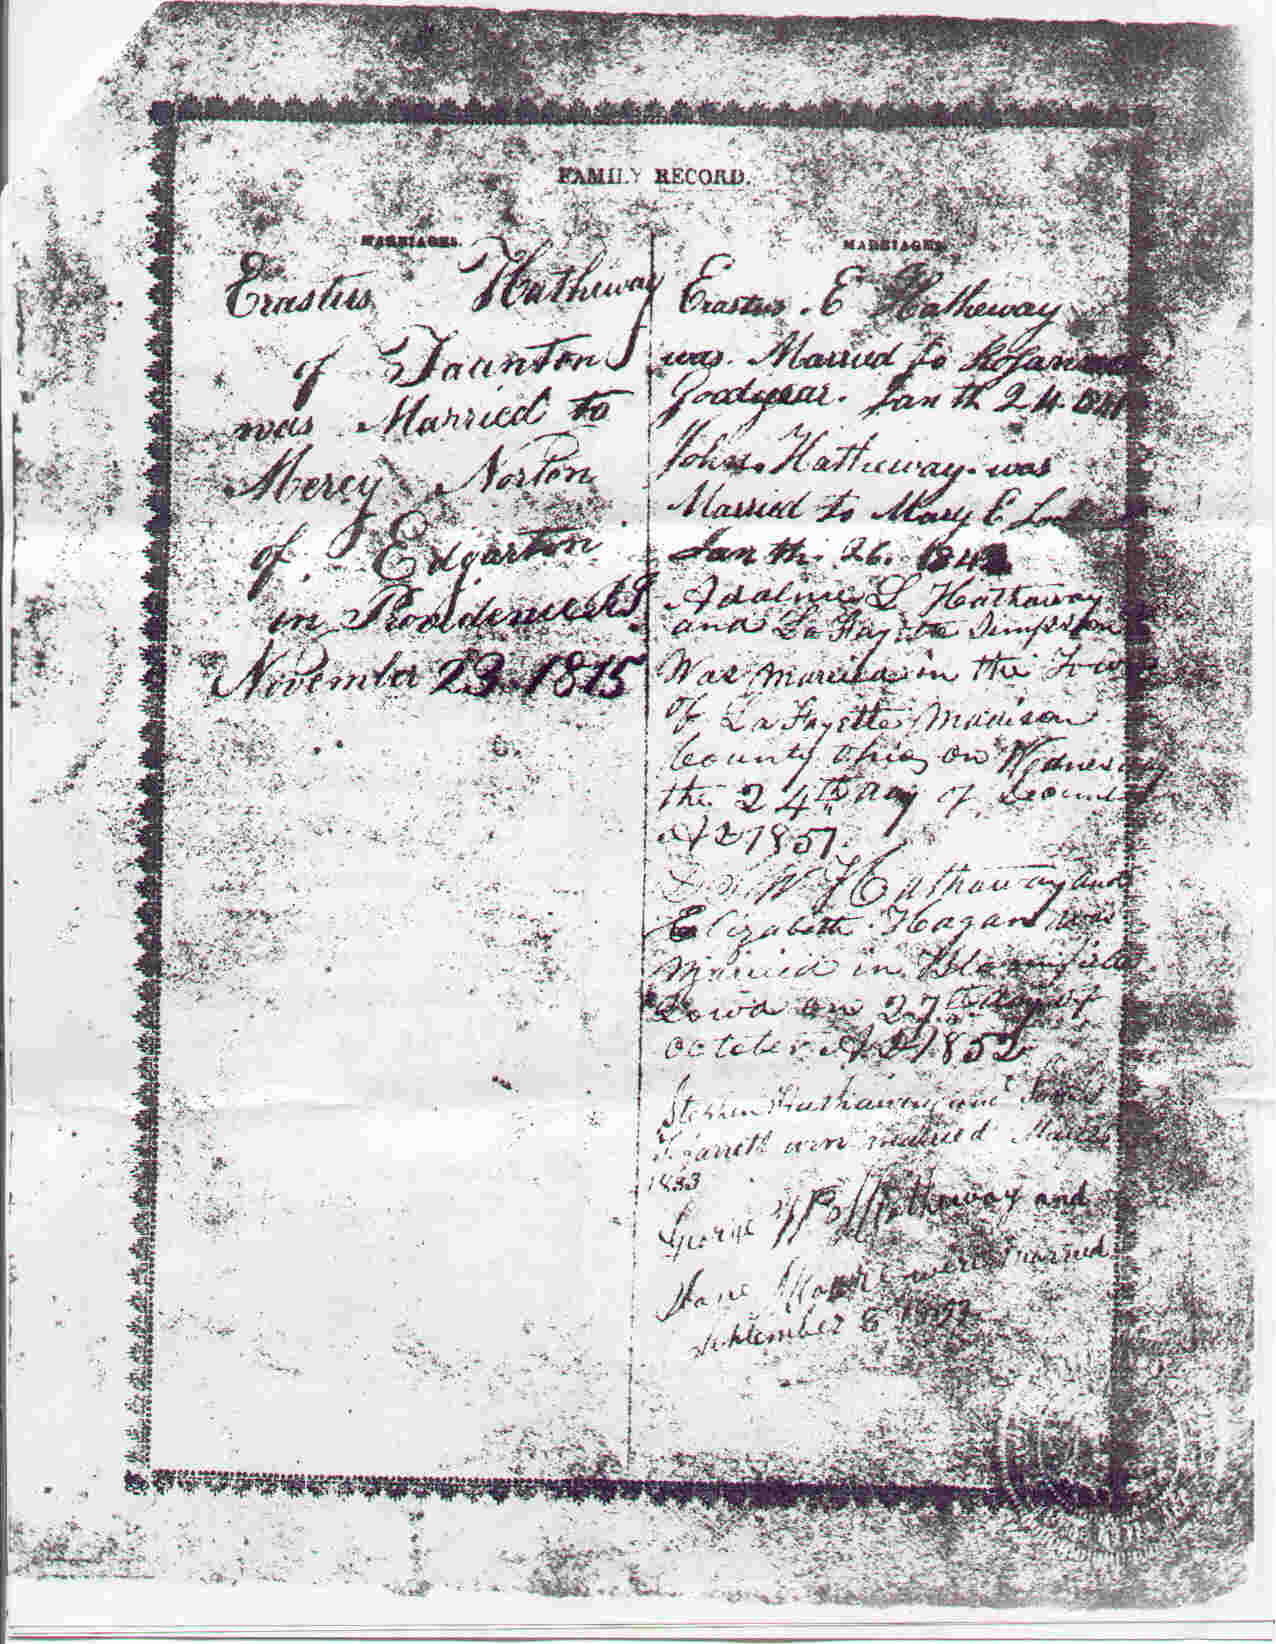 FAMILY RECORD.
MARRIAGES.
Erastus Hatheway
of Taunton
was Married to
Mercy Norton
of Edgarton
in Providence R.I.
November 23. 1815
MARRIAGES.
Erastus. E Hatheway
was. Married to Rosanna
Goodyear. Jan th 24.
John. Hatheway. was
Married to Mary E
Jan th. 26.
Adaline L Hathaway
and La Fayette Simpson
Was married in the Town
of La Fayette Madison
County Ohio on Wednesday
the 24th day of
AD 1851.
W Hathaway and
Elizabeth Hagan was
Married in Bloomfield
Iowa on 27th day of
October AD 1852
Stephen Hathaway and
Garrett were married
George Hathaway and
Jane were married
September 6